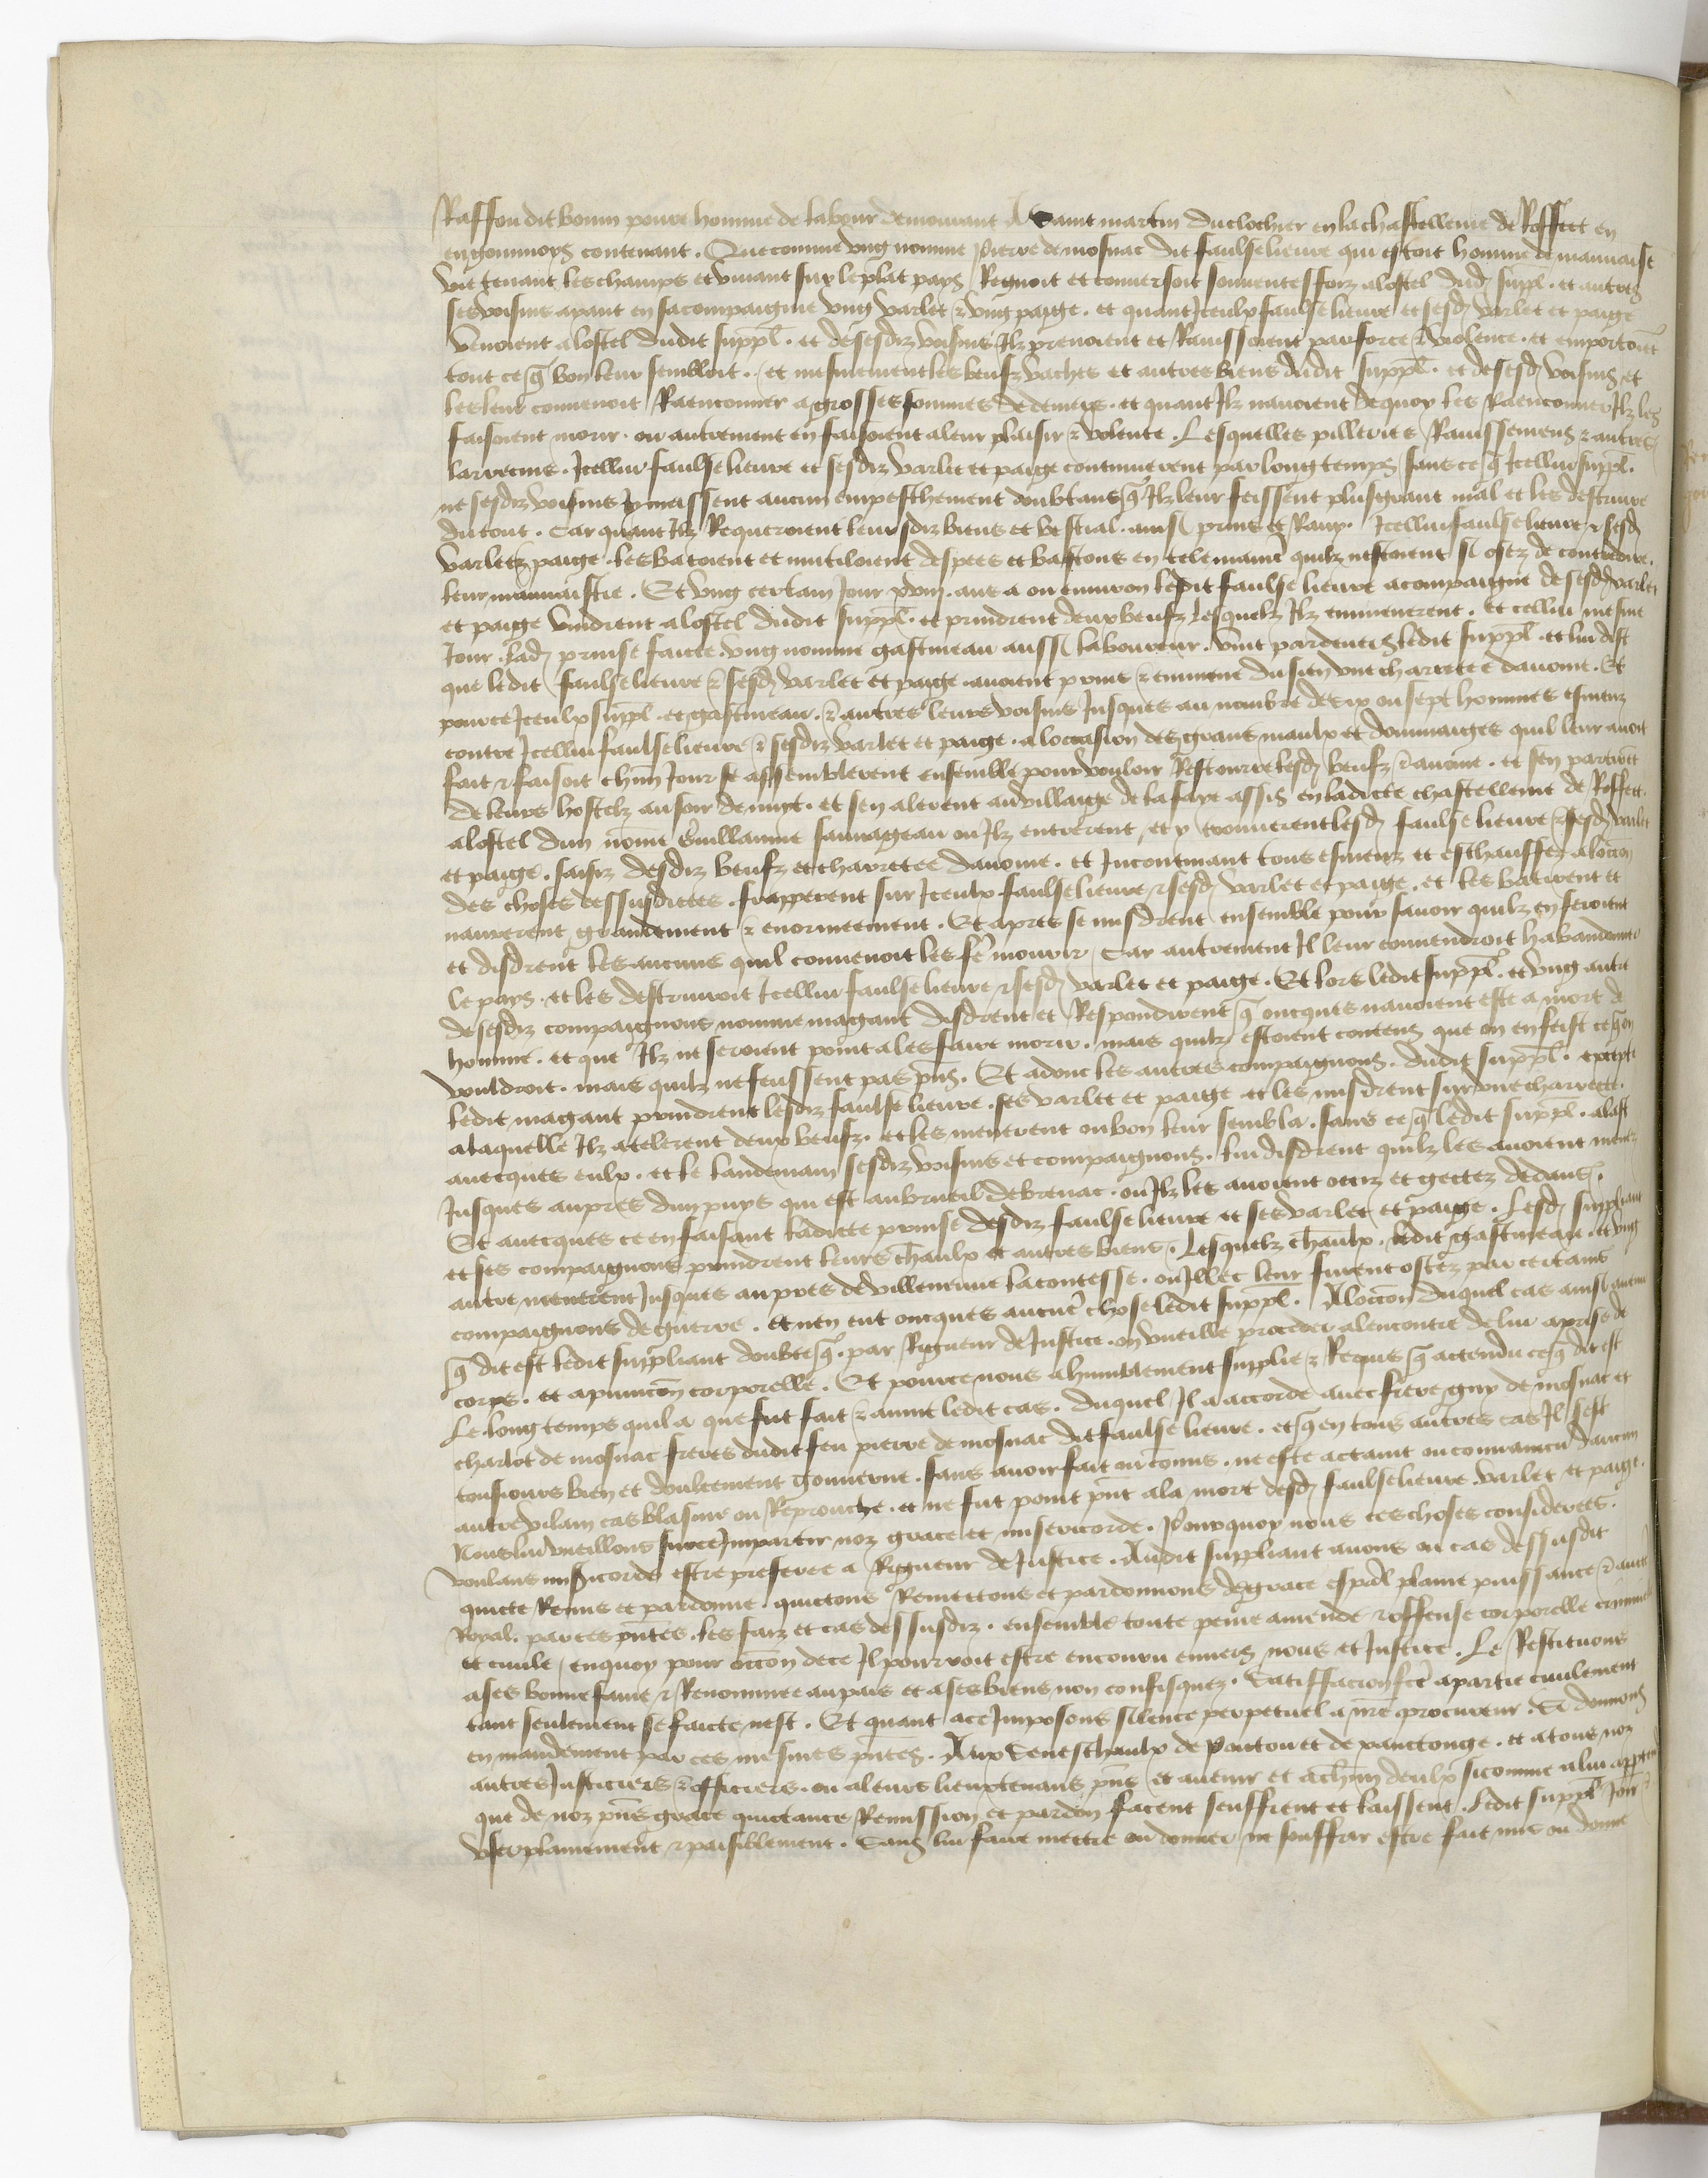 Raffon dit bouin povre homme de labour demourant a Saint martin du clochier en la chastellenie de Roffect en
engommoys contenant . Que comme ung nomme Pierre de mosnac dit faulse lieure qui estoit homme de mauuaise
vie tenant les champs et viuant sur le plat pays Regnoit et conuersoit souuentesfoiz a lostel dud suppl . et autres
ses voisins ayant en sa compaignie ung varlet & ung paige . et quant Iceulx faulse lieure et sesd varlet et paige
venoient a lostel dudit suppl . et de sesdiz voisins Ilz prenoient et Rauissoient par force & violence . et emportoiēt
tout ce q̄ bon leur sembloit . et mesmement les beufz vaches et autres biens dudit suppl . et de sesd voisins et
les leur conuenoit Raenconner a grosses sommes de deniers . et quant Ilz nauoient de quoy les Raenconner Ilz les
faisoient morir . ou autrement en faisoient a leur plaisir & volente . Lesquelles pilleries Rauissemens & autres
larrecins . Icellui faulse lieure et sesdiz varlet et paige continuerent par long temps sans ce q̄ Icellui suppl .
ne sesdiz voisins y meissent aucun empeschement doubtans q̄ Ilz leur feissent plus grant mal et les destruire
du tout . Car quant Ilz Requeroient leursdiz biens et bestial . ainsi prins et Rauy . Icellui faulse lieure & sesd
varlet & paige . les batoient et mutiloient despees et bastons en tele maniē quilz nestoient si osez de contredire .
leur mauuaistie . Et ung certain Jour xviii . ans a ou enuiron ledit faulse lieure acompaigne de sesd varlet
et paige vindrent a lostel dudit suppl . et prindrent deux beufz Lesquelz Ilz emmenerent . et cellui mesme
Jour . lad prinse faicte ung nomme gastineau aussi laboureur . vint par deuers ledit suppl . et lui dist
que ledit faulse lieure & sesd varlet et paige . auoient prins & emmene du sien une charretee dauoine . Et
pource Iceulx suppl . et gastineau . & autres leurs voisins Jusques au nombre de six ou sept hommes esmeuz
contre Icellui faulse lieure & sesdiz varlet et paige . a loccasion des grans maulx et dommaiges quil leur auoit
fait & faisoit chūn Jour se assemblerent ensemble pour vouloir Restourre lesd beufz & auoine . et sen partirēt
de leurs hostelz au soir de nuyt . et sen alerent au villaige de la faye assis en ladicte chastellenie de Roffect .
a lostel dun nome Guillaume sauuageau ou Ilz entrerent et y trouuerent lesd faulse lieure & sesd varlet
et paige . saisiz desdiz beufz et charretee dauoine . et Incontinant tous esmeuz et eschauffez a loccōn
des choses dessusdictes . frapperent sur Iceulx faulse lieure & sesd varlet et paige . et les batirent et
naurerent grandement & enormeement . Et apres se misdrent ensemble pour sauoir quilz en feroient
et disdrent les aucuns quil conuenoit les fē mourir Car autrement Il leur conuendroit habandonner
le pays . et les destruiroit Icellui faulse lieure & sesd varlet et paige . Et lors ledit suppl . et ung autre
de sesdiz compaignons nomme magant disdrent et Respondirent q̄ oncques nauoient este a mort de
homme . et que Ilz ne seroient point a les faire morir . mais quilz estoient contens que on en feist ce q̄ on
vouldroit . mais quilz ne feussent pas pn̄s . Et adonc les autres compaignons . dudit suppl . excepte
ledit magant prindrent lesdiz faulse lieure . ses varlet et paige et les misdrent sur une charrette .
a laquelle Ilz atelerent deux beufz . et les menerent ou bon leur sembla . sans ce q̄ ledit suppl . alast
auecques eulx . et le landemain sesdiz voisins et compaignons . lui disdrent quilz les auoient menez
Jusques aupres dun puys qui est au brueil de brenac . ou Ilz les auoient occiz et gectez dedans .
Et auecques ce en faisant ladicte prinse desdiz faulse lieure et ses varlet et paige . Lesd suppliant
et ses compaignons prindrent leurs ch̄aulx et autres biens . Lesquelz ch̄aulx . ledit gastineau . et ung
autre menerent Jusques aupres de villeneuue la contesse . ou Illec leur furent ostez par certains
compaignons de guerre . et nen eut oncques aucunē chose ledit suppl . A loccōn duquel cas ainsi auenu
q̄ dit est ledit suppliant doubte q̄ . par Rigueur de Justice . on vueille proceder a lencontre de lui a prise de
corps . et a punicōn corporelle . Et pource nous a humblement supplie & Requis q̄ actendu ce q̄ dit est
Le long temps quil a que fut fait & auint ledit cas . duquel Il a accorde auec frere guy de mosnac et
charlot de mosnac freres dudit feu pierre de mosnac dit faulse lieure . et q̄ en tous autres cas Il sest
tousiours bien et doulcement gouuerne . sans auoir fait ou cōmis . ne este actaint ou conuaincu daucun
autre vilain cas blasme ou Reprouche . et ne fut point pn̄t a la mort desd faulse lieure . varlet et paige .
Nous lui vueillons sur ce Impartir noz grace et misericorde . Pourquoy nous ces choses considerees .
voulans mīsicorde estre preferee a Rigueur de Justice . Audit suppliant auons ou cas dessusdit
quicte Remis et pardonne . quictons Remettons et pardonnons de grace esp̄al plaine puissance & aucte
Royal . par ces pn̄tes . les faiz et cas dessusdiz . ensemble toute peine amende & offense corporelle criminelle
et ciuile / en quoy pour occōn de ce Il pourroit estre encouru enuers nous et Justice . Le Restituons
a ses bonne fame & Renommee au pais et a ses biens non confisquez . Satiffacion fcē a partie ciuilement
tant seulement se faicte nest . Et quant a ce Imposons silence perpetuel a nr̄e procureur . Si donnons
en mandement par ces mesmes pn̄tes . Aux Seneschaulx de Poitou et de xanctonge . et a tous noz
autres Justiciers & officiers . ou a leurs lieuxtenans pn̄s et auenir et a chūn deulx sicomme a lui appten
que de noz pn̄s grace quictance Remission et pardon facent seuffrent et laissent . Ledit suppl Joir &
vser plainement & paisiblement . Sans lui faire mettre ou donner ne souffrir estre fait mis ou donne